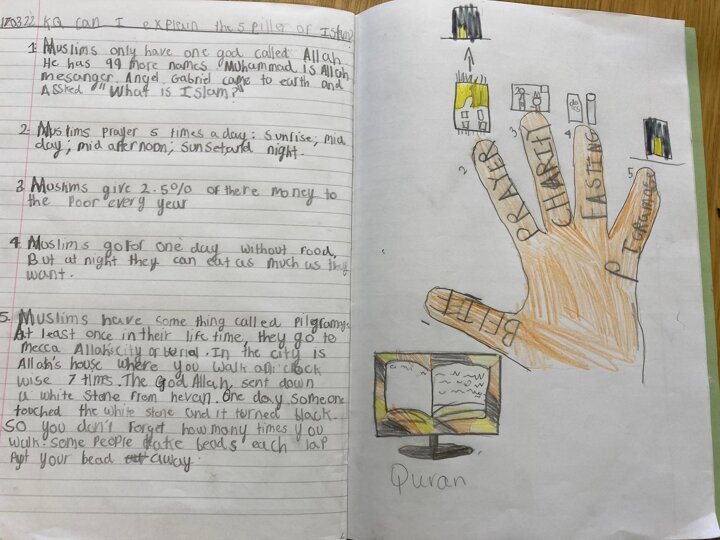 17.03.22 KQ can I explain the 5 piller of Islam?
1. Muslims only have one god called Allah.
He has 99 more names. Muhammad is Allah
mesanger. Angel Gabriel came to earth and
Assked "What is Islam?"
2. Muslims prayer 5 times a day: sunrise, mid
day, mid afternoon, sunset and night.
3 Muslims give 2.5% of there money to
the poor every year
4. Muslims go for one day without food,
But at night they can eat as much us they
want.
5. Muslims have some thing called pilgramage
At least once in their life time, they go to
mecca Allah's city or . In the city is
Allah's house where you walk anti clock
wise 7 tims. The God Allah, sent down
a white stone from hevan. One day someone
touched the white stone and it turned black.
So you don't forget how many times you
walk. some people take beads each lap
Put your bead away.
BELIEF
2 PRAYER
3 CHARITY
4 FASTING
5 Pilgramage
Quran